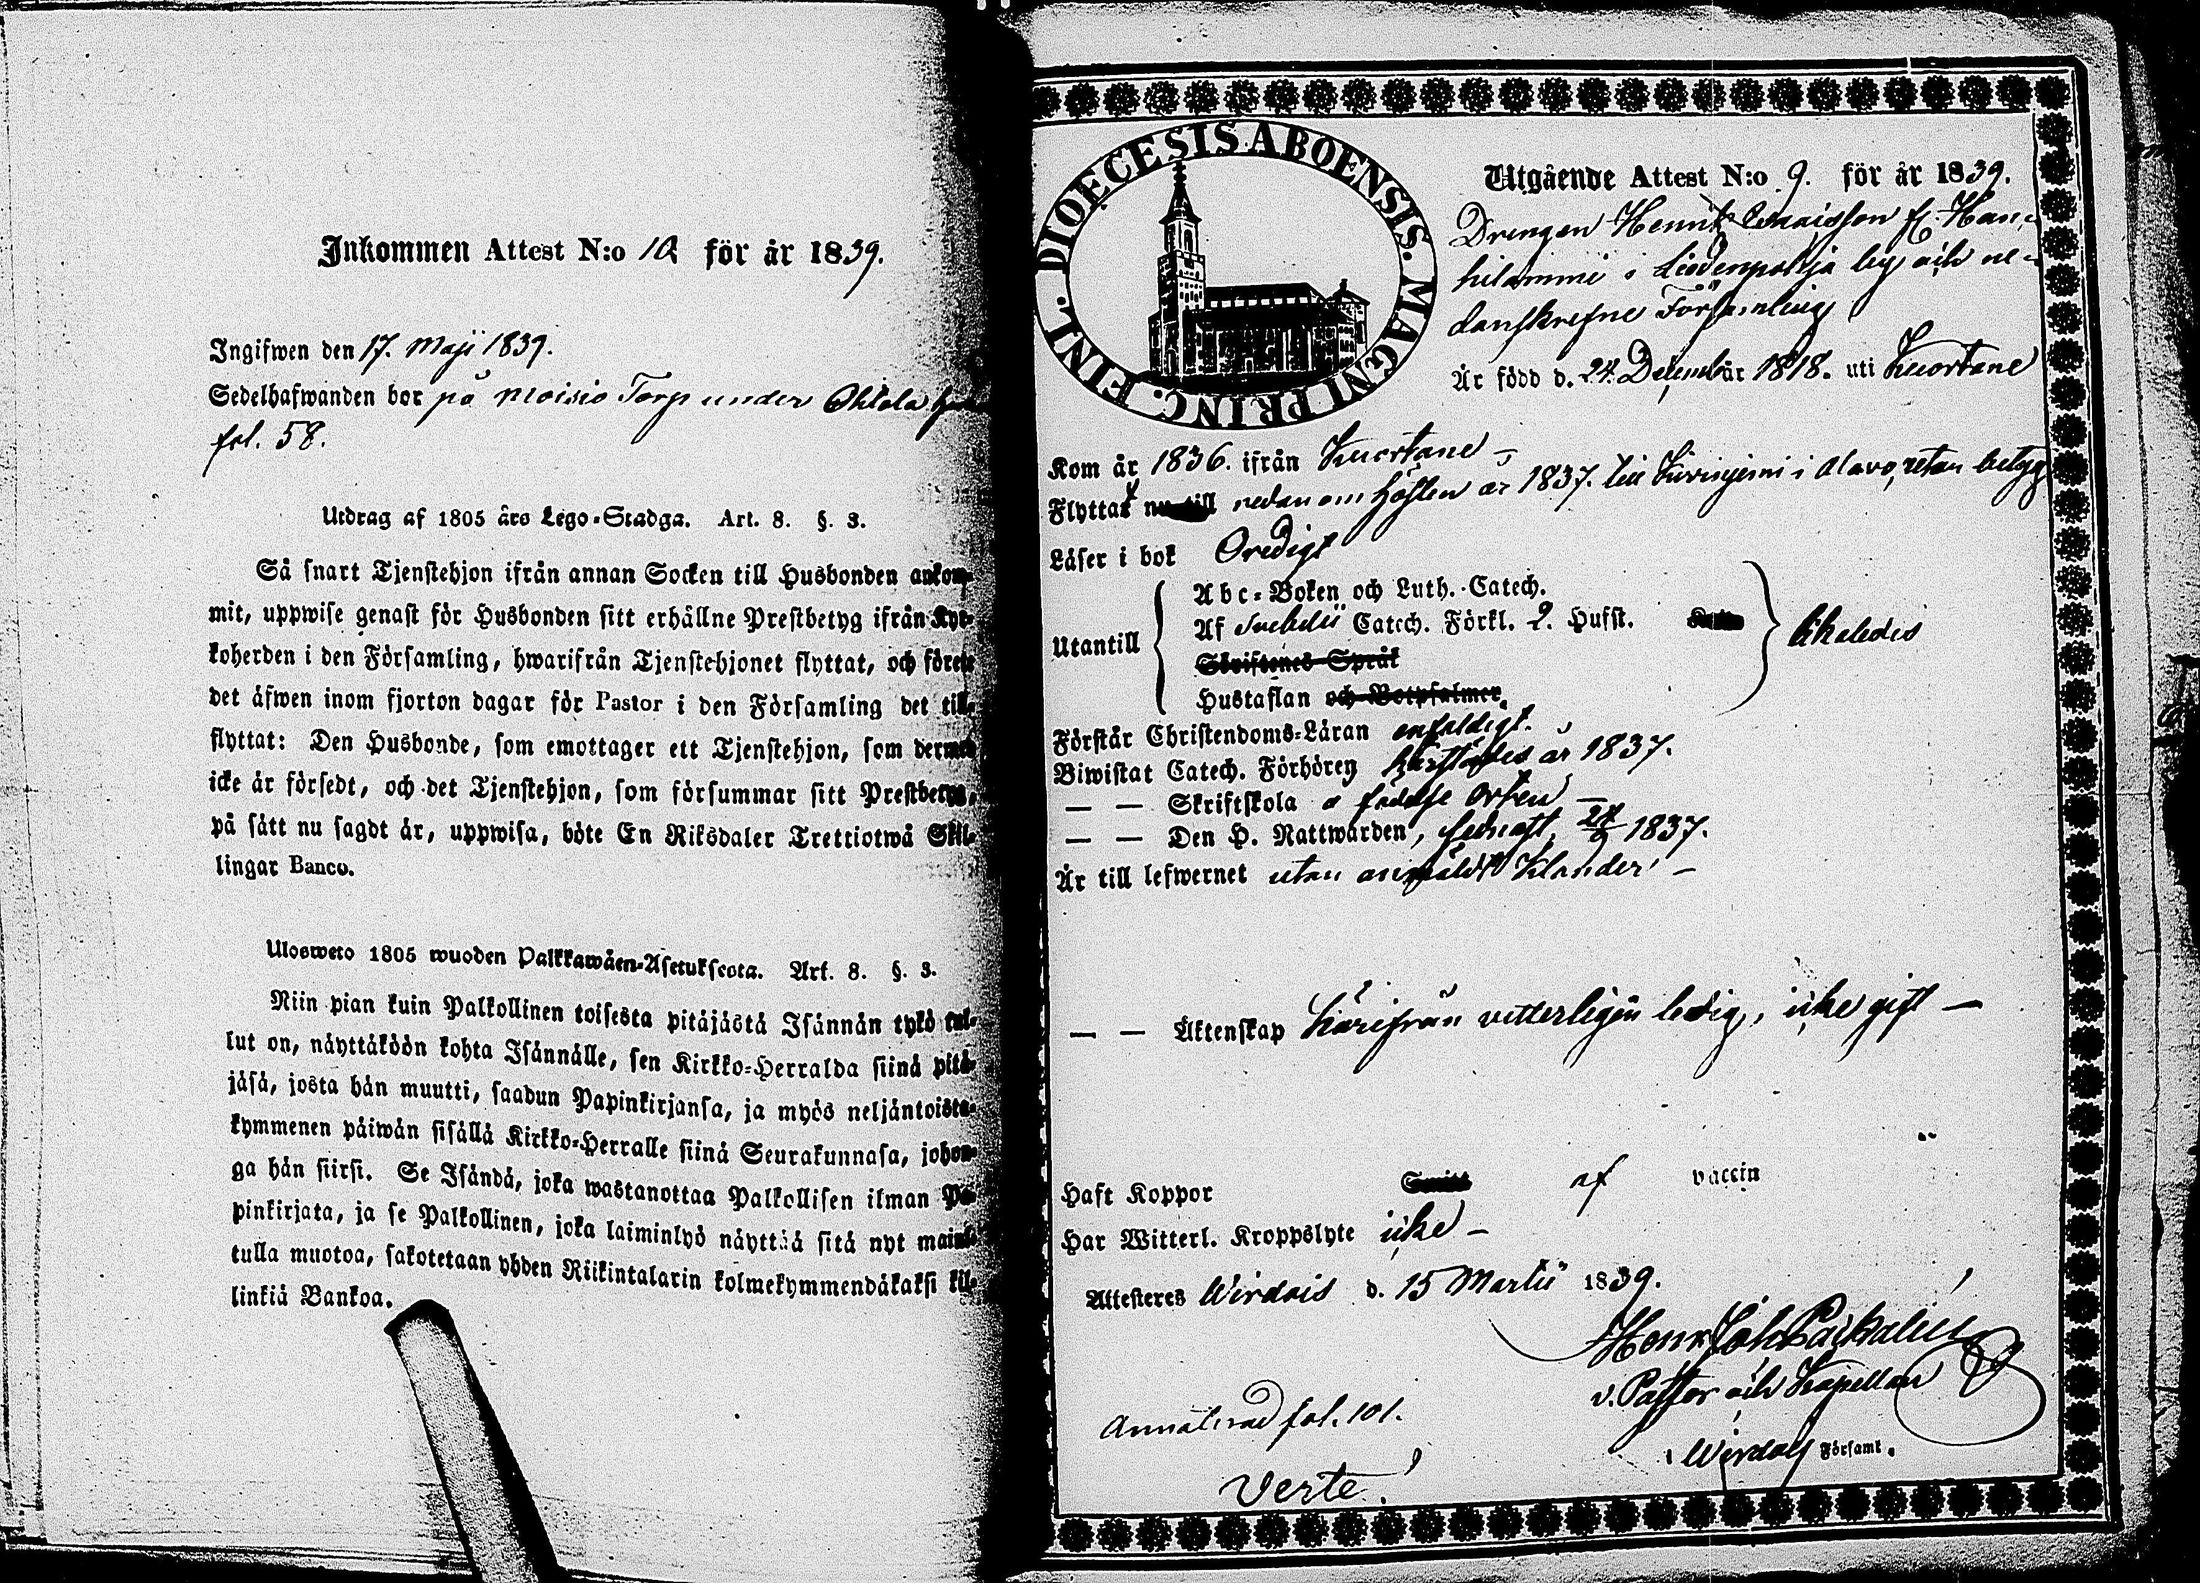 Inkommen Attest N:o 10 för år 1839.
Ingifwen den 17. Maji 1839.
Sedelhafwanden bor på Moisio Torp under Ohtola
fol. 58.
Utdrag af 1805 års Lego-Stadga. Art. 8. §. 3.
Så snart Tjenstehjon ifrån annan Socken till Husbonden ankom-
mit, uppwise genast för Husbonden sitt erhållne Prestbetyg ifrån Kyr-
koherden i den Församling, hwarifrån Tjenstehjonet flyttat, och förete
det äfwen inom fjorton dagar för Pastor i den Församling det till-
flyttat: Den Husbonde, som emottager ett Tjenstehjon, som dermed
icke är försedt, och det Tjenstehjon, som försummar sitt Prestbetyg,
på sätt nu sagdt är, uppwisa, böte En Riksdaler Trettiotwå Skil-
lingar Banco.
Ulosweto 1805 wuoden Palkkawäen-Asetuksesta. Art. 8. §. 3.
Niin pian kuin Palkollinen toisesta pitäjästä Isännän tykö tul-
lut on, näyttäköön kohta Isännälle, sen Kirkko-Herralda siinä pitä-
jäsä, josta hän muutti, saadun Papinkirjansa, ja myös neljäntoista-
kymmenen päiwän sisällä Kirkko-Herralle siinä Seurakunnasa, johon-
ga hän siirsi. Se Isändä, joka wastanottaa Palkollisen ilman Pa-
pinkirjata, ja se Palkollinen, joka laiminlyö näyttää sitä nyt mainit-
tulla muotoa, sakotetaan yhden Riikintalarin kolmekymmendäkaksi kil-
linkiä Bankoa.
DIOECESIS ABOENSIS. MAGNI PRINC. FINL.
Utgående Attest N:o 9. för år 1839.
Drengen Henrik fr. Han-
hilammi i Liedenpohja by och ne-
danskrefne Församling
Är född d. 24 December 1818. uti Kuortane
Kom år 1836. ifrån Kuortane –
Flyttat nu till redan om hösten år 1837. till i Alavo, utan betyg
Läser i bok Oredigt
Utantill
Abc-Boken och Luth. Catech.
Af Svebelii Catech. Förkl. 2. Hufst.
Skriftenes Språk
Hustaflan och Botpsalmer.
Förstår Christendoms-Läran enfaldigt.
Biwistat Catech. Förhören härstädes år 1837.
— — Skriftskola å födelse Orten –
— — Den H. Nattwarden, senast, 24/9 1837.
Är till lefwernet utan anmäldt klander –
— — Äktenskap härifrån vitterligen ledig, icke gift –
Haft Koppor af vaccin
Har Witterl. Kroppslyte icke –
Attesteres Wirdois d. 15 Martii 1839.
Henr. Joh.
v. Pastor och Kapellan
i Wirdois Församl.
Annoterad fol. 101.
Verte!